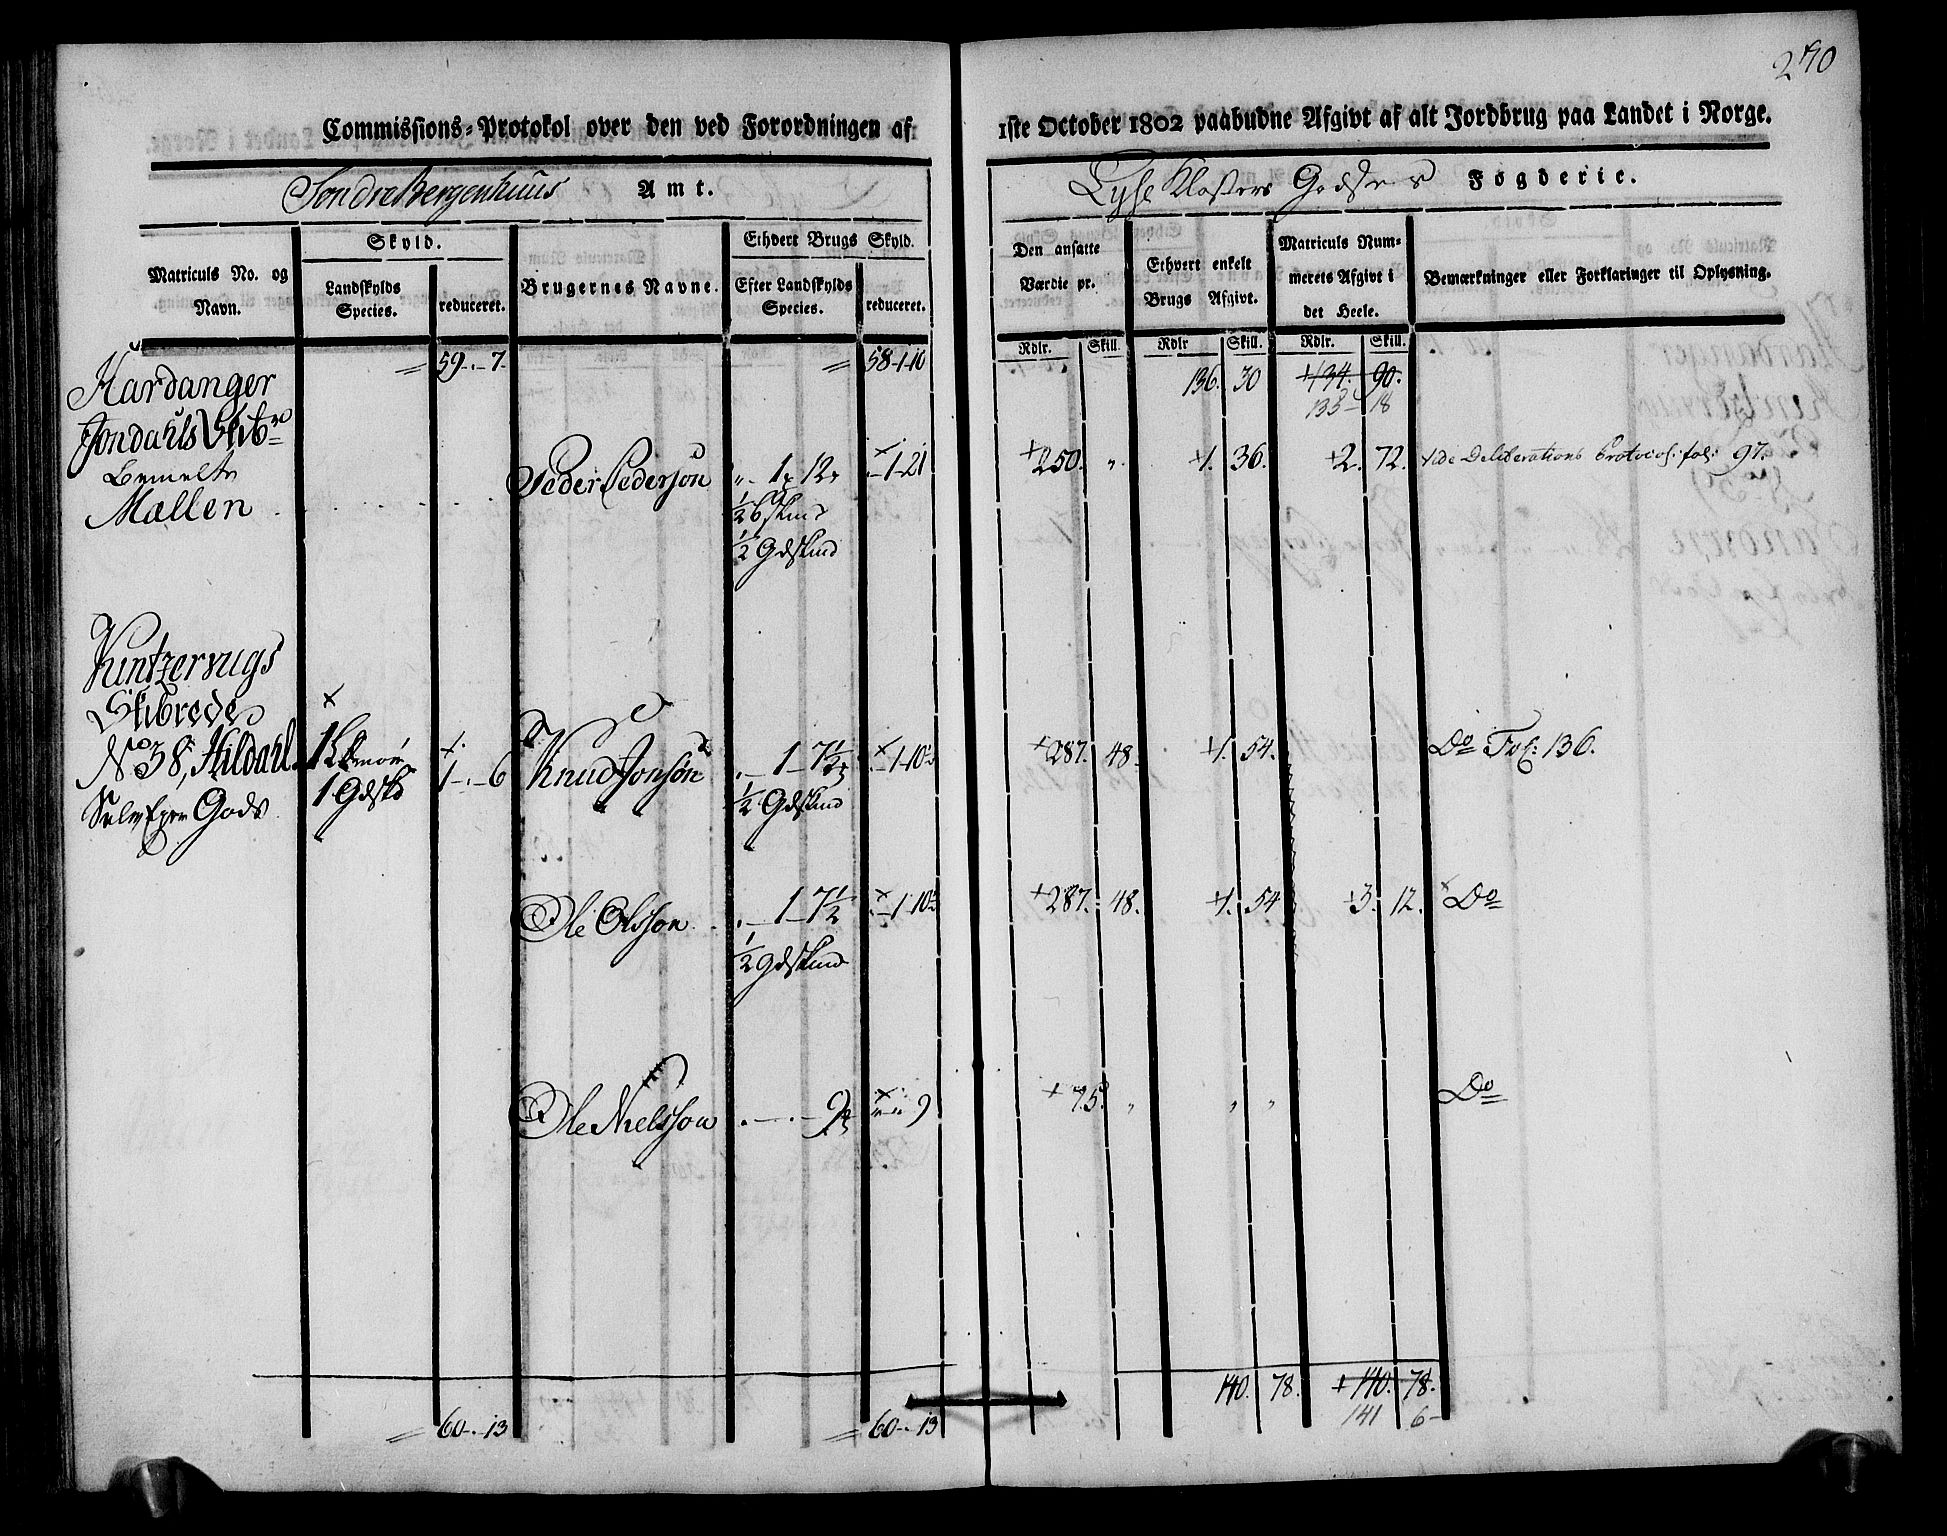 240
Commissions-Protokol over den ved Forordningen af 1ste October 1802 paabudne Afgivt af alt Jordbrug paa Landet i Norge.
Søndre Bergenhuus Amt. Lyse Klosters Godses Fogderie.
Matriculs No. og Navn.
Skyld.
Landskylds Species.
reduceret.
Brugernes Navne.
Ethvert Brugs Skyld.
Efter Landskylds Species.
reduceret.
Den ansatte Værdie pr.
Ethvert enkelt Brugs Afgivt.
Matriculs Nummerets Afgivt i det Heele.
Bemærkninger eller Forklaringer til Oplysning.
Rdlr. Skill. Rdlr Skill. Rdlr. Skill.
59 - . - 7. 58-1-10 136. 30 134. 90.
135 - 18
Hardanger
Jondahls Skibr
Bemelte
Mællen
Peder Pederson 1 12 1-21 250. " 1. 36. 2. 72. vide Deliberations Protocol: fol: 97.
1/2 Gdskind
Kintzervigs
Skibrede
No 38, Hildahl 1 Gdskd 1-.-6 Knud Jonsøn 1-7½ 1-10½ 287. 48. 1. 54. Do Fol: 136.
1/2 Gdskind
Gods
Ole Olsson 1-7½ 1-10½ 287. 48. 1. 54 3. 12. Do
1/2 Gdskind
Ole Nielsson 9 9 75. " " " Do
140. 78. 140. 78.
60-.-13 60-.-13 141 6-